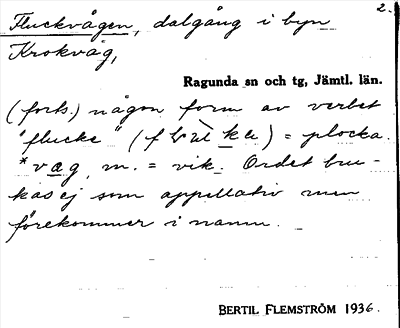 2.
Fluckvågen, dalgång i byn
Krokvåg,
Ragunda sn och tg, Jämtl. län.
(forts.) någon form av verbet
"flucke" ( ) = plocka.
*våg, m. = vik. Ordet bru-
kas ej som appellativ men
förekommer i namn.
BERTIL FLEMSTRÖM 1936.